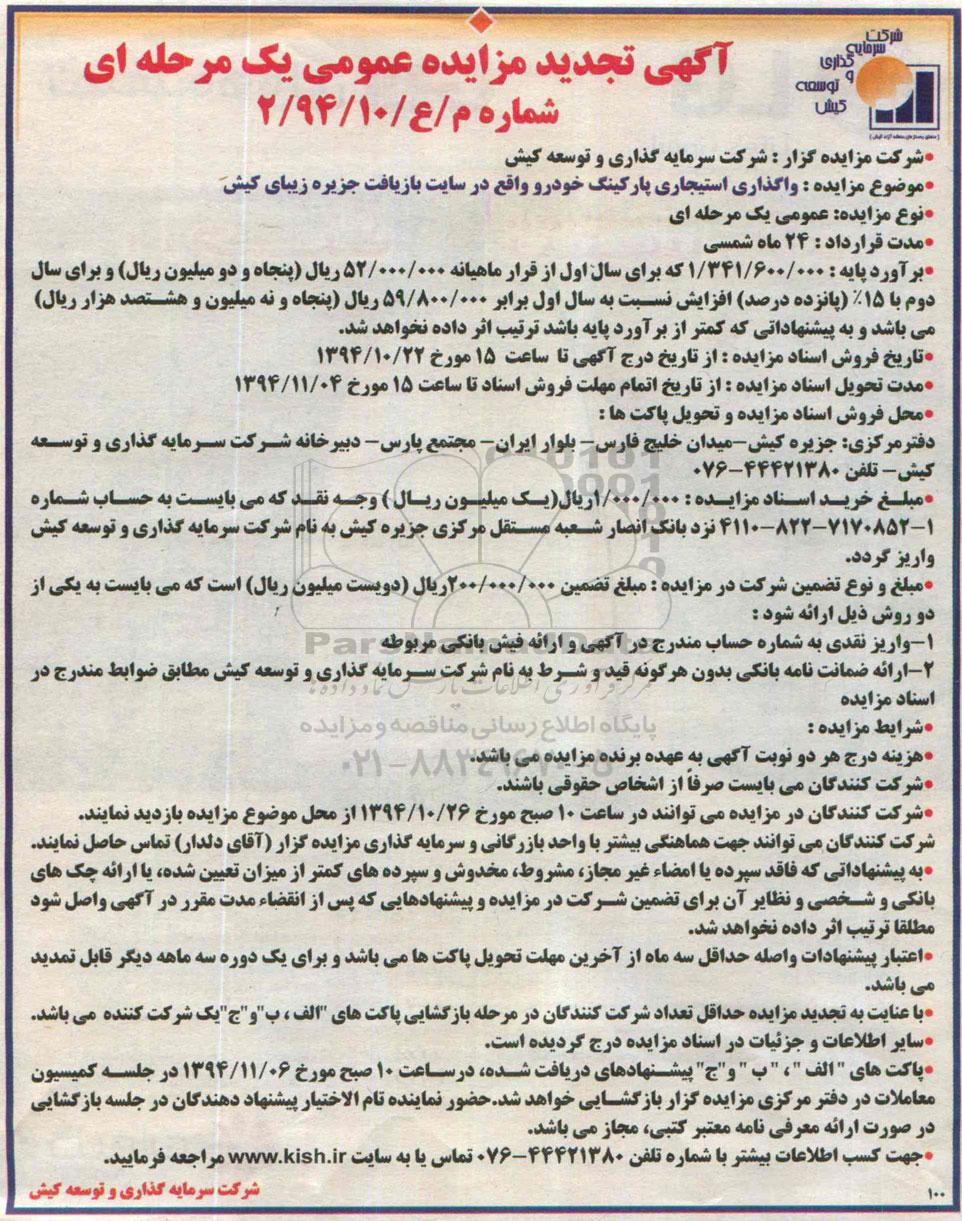 شرکت
سرمایه
گذاری
و
توسعه
کیش
آگهی تجدید مزایده عمومی یک مرحله ای
شماره م/ع/۲/۹۴/۱۰
•شرکت مزایده گزار : شرکت سرمایه گذاری و توسعه کیش
•موضوع مزایده : واگذاری استیجاری پارکینگ خودرو واقع در سایت بازیافت جزیره زیبای کیش
•نوع مزایده: عمومی یک مرحله ای
•مدت قرارداد : ۲۴ ماه شمسی
•برآورد پایه : ۱/۳۴۱/۶۰۰/۰۰۰ که برای سال اول از قرار ماهیانه ۵۲/۰۰۰/۰۰۰ ریال (پنجاه و دو میلیون ریال) و برای سال
دوم با ۱۵٪ (پانزده درصد) افزایش نسبت به سال اول برابر ۵۹/۸۰۰/۰۰۰ ریال (پنجاه و نه میلیون و هشتصد هزار ریال)
می باشد و به پیشنهاداتی که کمتر از برآورد پایه باشد ترتیب اثر داده نخواهد شد.
•تاریخ فروش اسناد مزایده : از تاریخ درج آگهی تا ساعت ۱۵ مورخ ۱۳۹۴/۱۰/۲۲
•مدت تحویل اسناد مزایده : از تاریخ اتمام مهلت فروش اسناد تا ساعت ۱۵ مورخ ۱۳۹۴/۱۱/۰۴
•محل فروش اسناد مزایده و تحویل پاکت ها :
دفترمرکزی: جزیره کیش–میدان خلیج فارس– بلوار ایران– مجتمع پارس– دبیرخانه شرکت سرمایه گذاری و توسعه
کیش– تلفن ۴۴۴۲۱۳۸۰–۰۷۶
•مبلغ خرید اسناد مزایده : ۱/۰۰۰/۰۰۰ریال(یک میلیون ریال ) وجه نقد که می بایست به حساب شماره
۱–۷۱۷۰۸۵۲–۸۲۲–۴۱۱۰ نزد بانک انصار شعبه مستقل مرکزی جزیره کیش به نام شرکت سرمایه گذاری و توسعه کیش
واریز گردد.
•مبلغ و نوع تضمین شرکت در مزایده : مبلغ تضمین ۲۰۰/۰۰۰/۰۰۰ریال (دویست میلیون ریال) است که می بایست به یکی از
دو روش ذیل ارائه شود :
۱–واریز نقدی به شماره حساب مندرج در آگهی و ارائه فیش بانکی مربوطه
۲–ارائه ضمانت نامه بانکی بدون هرگونه قید و شرط به نام شرکت سرمایه گذاری و توسعه کیش مطابق ضوابط مندرج در
اسناد مزایده
•شرایط مزایده :
•هزینه درج هر دو نوبت آگهی به عهده برنده مزایده می باشد.
•شرکت کنندگان می بایست صرفاً از اشخاص حقوقی باشند.
•شرکت کنندگان در مزایده می توانند در ساعت ۱۰ صبح مورخ ۱۳۹۴/۱۰/۲۶ از محل موضوع مزایده بازدید نمایند.
شرکت کنندگان می توانند جهت هماهنگی بیشتر با واحد بازرگانی و سرمایه گذاری مزایده گزار (آقای دلدار) تماس حاصل نمایند.
•به پیشنهاداتی که فاقد سپرده یا امضاء غیر مجاز، مشروط، مخدوش و سپرده های کمتر از میزان تعیین شده، یا ارائه چک های
بانکی و شخصی و نظایر آن برای تضمین شرکت در مزایده و پیشنهادهایی که پس از انقضاء مدت مقرر در آگهی واصل شود
مطلقا ترتیب اثر داده نخواهد شد.
•اعتبار پیشنهادات واصله حداقل سه ماه از آخرین مهلت تحویل پاکت ها می باشد و برای یک دوره سه ماهه دیگر قابل تمدید
می باشد.
•با عنایت به تجدید مزایده حداقل تعداد شرکت کنندگان در مرحله بازگشایی پاکت های "الف ، ب"و"ج"یک شرکت کننده می باشد.
•سایر اطلاعات و جزئیات در اسناد مزایده درج گردیده است.
•پاکت های " الف " ، " ب " و"ج" پیشنهادهای دریافت شده، درساعت ۱۰ صبح مورخ ۱۳۹۴/۱۱/۰۶ در جلسه کمیسیون
معاملات در دفتر مرکزی مزایده گزار بازگشایی خواهد شد.حضور نماینده تام الاختیار پیشنهاد دهندگان در جلسه بازگشایی
در صورت ارائه معرفی نامه معتبر کتبی، مجاز می باشد.
•جهت کسب اطلاعات بیشتر با شماره تلفن ۴۴۴۲۱۳۸۰–۰۷۶ تماس یا به سایت www.kish.ir مراجعه فرمایید.
۱۰۰
شرکت سرمایه گذاری و توسعه کیش
پایگاه اطلاع رسانی مناقصه و مزایده